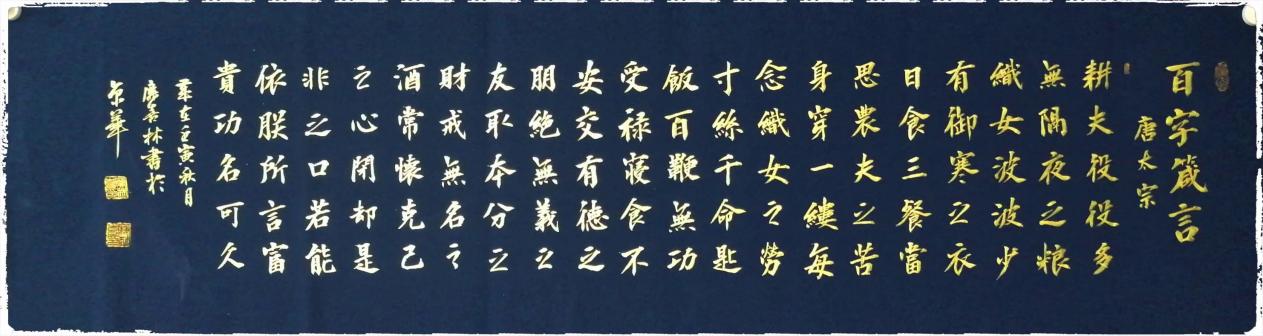 百字箴言
唐太宗
耕夫役役多
無隔夜之粮
織女波波少
有御寒之衣
日食三餐當
思農夫之苦
身穿一縷每
念織女之勞
寸絲千命匙
飯百鞭無功
受禄寝食不
安交有德之
朋絶無義之
友取本分之
財戒無名之
酒常懷克己
之心閉却是
非之口若能
依朕所言富
貴功名可久
歲在壬寅秋月
林書於
京華